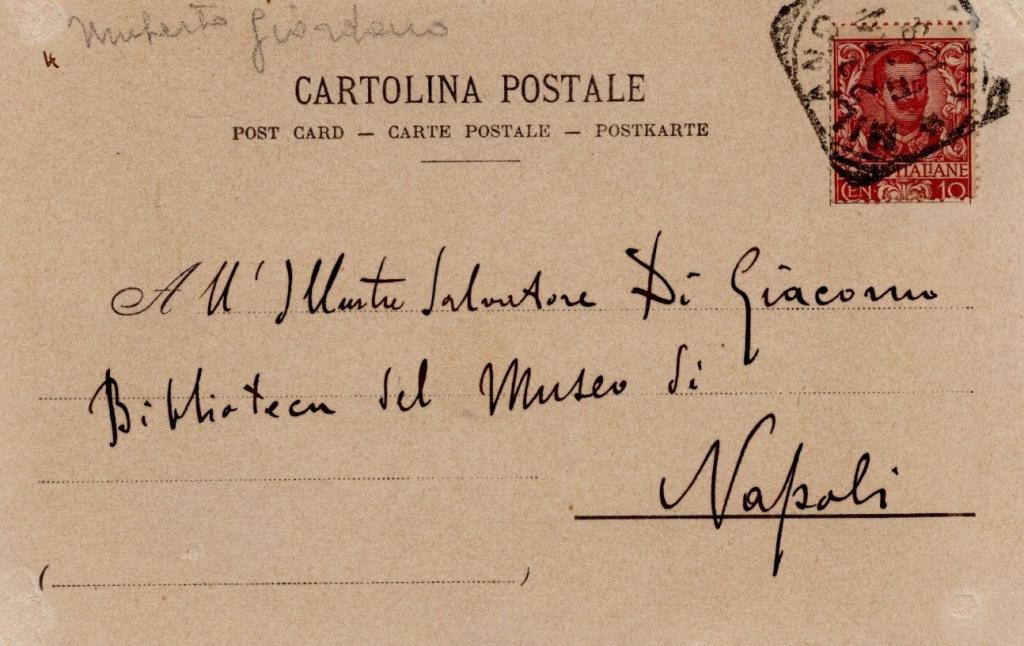 Umberto Giordano
CARTOLINA POSTALE
POST CARD — CARTE POSTALE — POSTKARTE
ITALIANE
CEN 10
All' Illustre Salvatore Di Giacomo
Biblioteca del Museo di
Napoli
( )